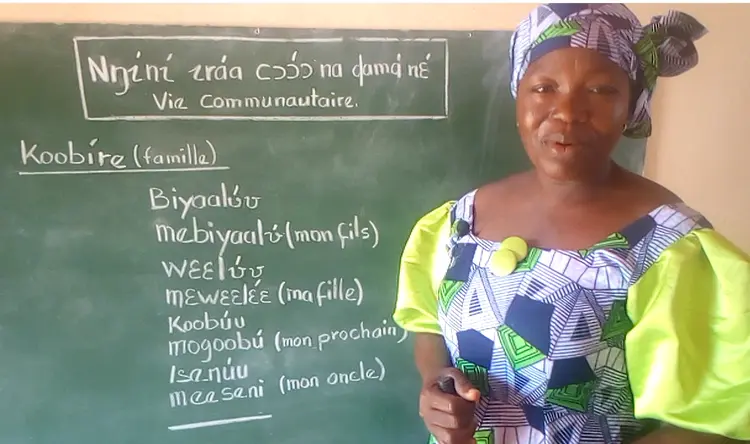 Nŋɩ́nɩ́ ɩráa cɔɔ́ɔ na ɖamá nɛ́
Vie Communautaire.
Koobíre (famille)
Biyaalʊ́ʊ
mebiyaalʊ́ (mon fils)
wɛɛlʊ́ʊ
mɛwɛɛlɛ́ɛ (ma fille)
Koobúu
mogoobú (mon prochain)